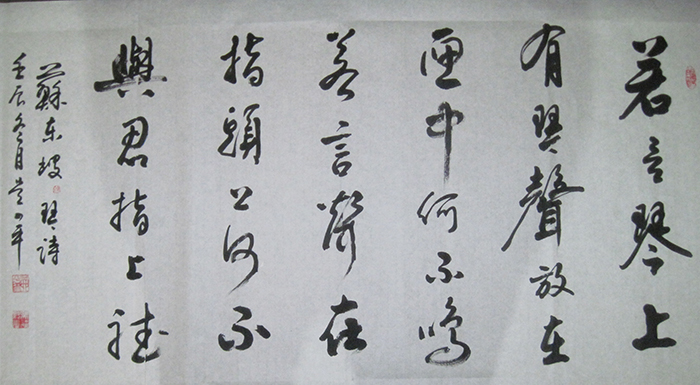 若言琴上
有琴聲放在
匣中何不鳴
若言聲在
指頭上何不
與君指上聽
蘇東坡琴詩
壬辰冬月